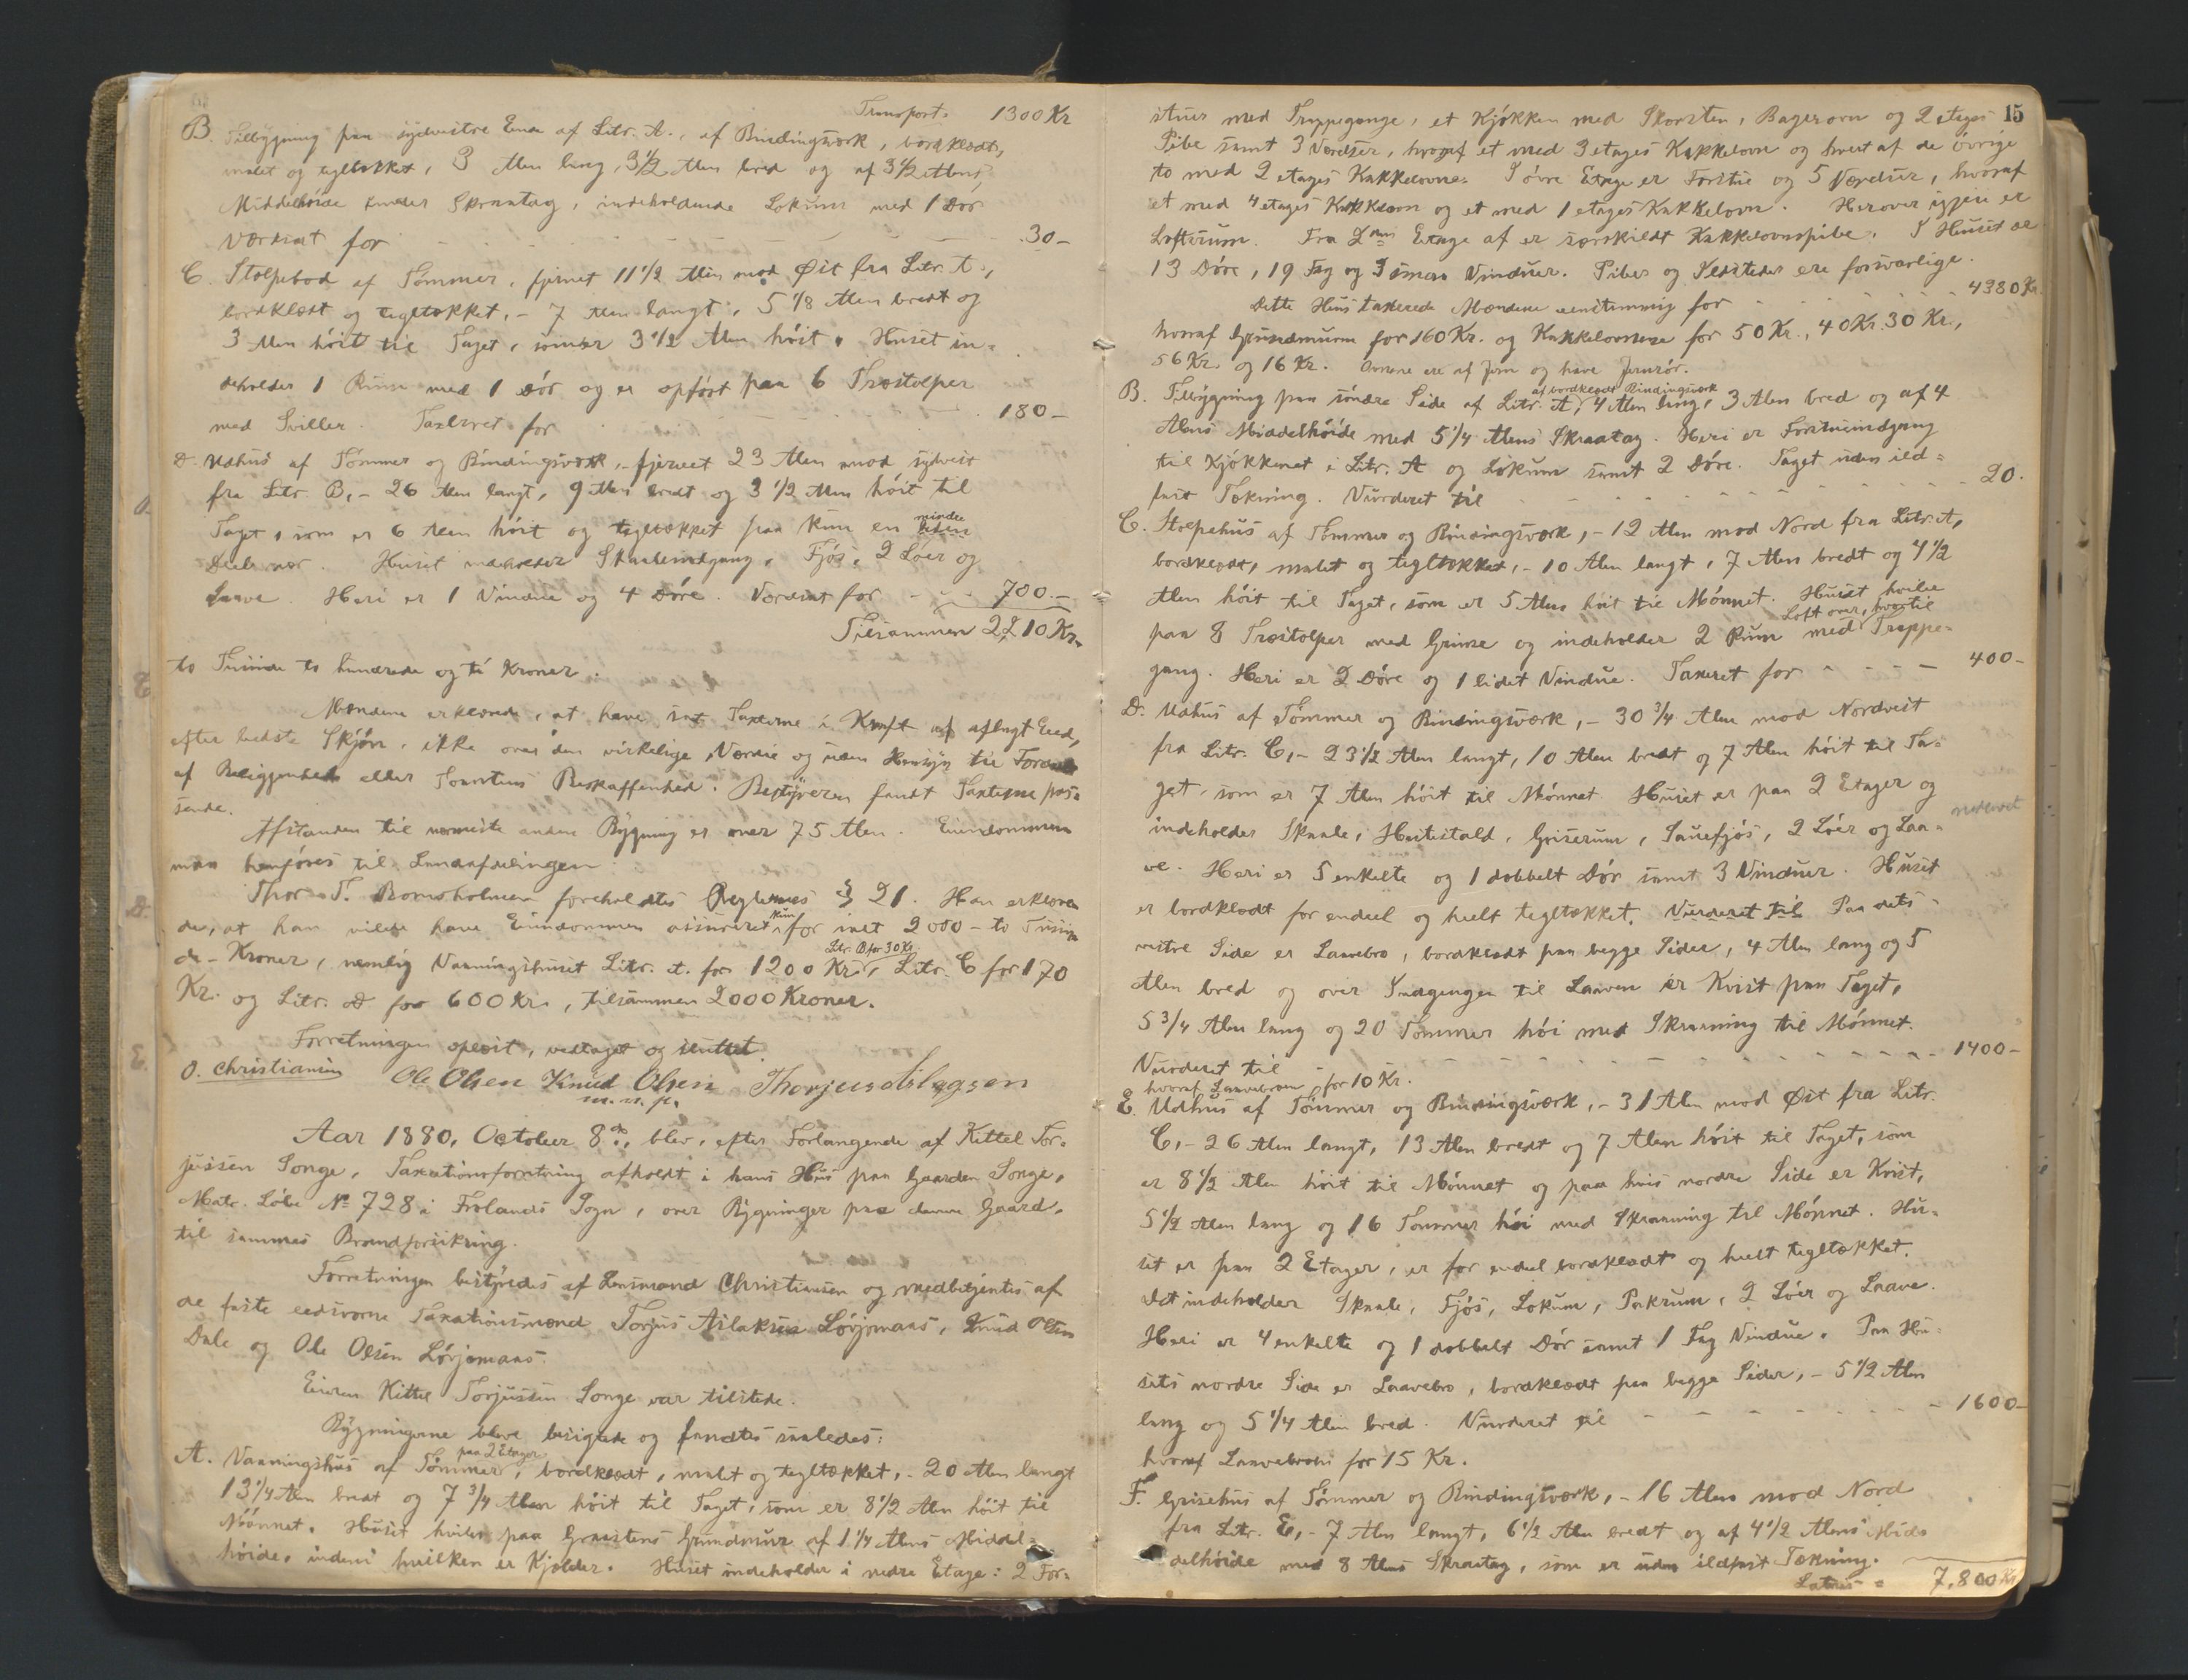 Transport. 1300 Kr
B. Tilbygning paa sydvestre Ende af Litr. A., af Bindingsværk, bordklædt,
malet og tegltækket, 3 Alen lang, 3 1/2 Alen bred og af 3 1/2 Alens
Middelhöide under Skraatag, indeholdende Lokum med 1 Dör
Værdsat for - - - 30 -
C. Stolpebod af Tömmer, fjernet 11 1/2 Alen mod Øst fra Litr. A.,
bordklædt og tegltækket, - 7 Alen langt, 5 1/8 Alen bredt og
3 Alen höit til Taget, som er 3 1/2 Alen höit. Huset in-
deholder 1 Rum med 1 Dör og er opfört paa 6 Træstolper
med Sviller. Taxeret for - - - 180 -
D. Udhus af Tömmer og Bindingsværk, - fjernet 23 Alen mod sydvest
fra Litr. B, - 26 Alen langt, 9 Alen bredt og 3 1/2 Alen höit til
Taget, som er 6 Alen höit og tegltækket paa kun en mindre
Deel nær. Huset indeholder Skaaleindgang, Fjös, 2 Löer og
Laave. Heri er 1 Vindue og 4 Döre. Værdsat for - - - 700 -
Tilsammen 2,210 Kr.
to Tusinde to hundrede og ti Kroner.
Mændene erklærede, at have sat Taxterne i Kraft af aflagt Eed,
efter bedste Skjön, ikke over den virkelige Værdie og uden Hensyn til
af Beliggenhed eller Tomtens Beskaffenhed. Bestyreren fandt Taxterne pas-
sende.
Afstanden til nærmeste anden Bygning er over 75 Alen. Eiendommen
maa henföres til Landafdelingen.
Thor T. Bomsholmen foreholdtes Reglernes § 21. Han erklære-
de, at han vilde have Eiendommen assureret kun for 2000 - to Tusin-
de - Kroner, nemlig Vaaningshuset Litr. A. for 1200 Kr., Litr. B for 30 Kr., Litr. C for 170
Kr. og Litr. D for 600 Kr., tilsammen 2000 Kroner.
Forretningen oplæst, vedtaget og sluttet.
O. Christiansen Ole Olsen Knud Olsen Thorjus Aslagsen
m. n. p.
Aar 1880, October 8de, blev, efter Forlangende af Kittel Tor-
jussen Songe, Taxationsforretning afholdt i hans Hus paa Gaarden Songe,
Matr. Löbe No 728 i Frolands Sogn, over Bygninger paa denne Gaard,
til sammes Brandforsikring.
Forretningen bestyredes af Lensmand Christiansen og medbetjentes af
de faste eedsvorne Taxationsmænd Torjus Aslaksen Lövjomaas, Knud Olsen
Dale og Ole Olsen Lövjomaas.
Eieren Kittel Torjussen Songe var tilstede.
Bygningerne bleve besigtede og fandtes saaledes:
A. Vaaningshus af Tömmer, paa 2 Etager, bordklædt, malet og tegltækket, - 20 Alen langt
13 1/4 Alen bredt og 7 3/4 Alen höit til Taget, som er 8 1/2 Alen höit til
Mönnet. Huset hviler paa Graastens Grundmur af 1 1/4 Alens Middel-
höide, indeni hvilken er Kjelder. Huset indeholder i nedre Etage: 2 For-
15
stuer med Trappegange, et Kjökken med Skorsten, Bagerovn og 2 etages
Pibe samt 3 Værelser, hvoraf et med 3 etages Kakkelovn og hvert af de övrige
to med 2 etages Kakkelovne. I övre Etage er Forstue og 5 Værelser, hvoraf
et med 4 etages Kakkelovn og et med 1 etages Kakkelovn. Herover igjen er
Loftsrum. Fra 2den Etage af er særskildt Kakkelovnspibe. I Huset er
13 Döre, 19 Fag og 3 smaa Vinduer. Piber og Ildsteder ere forsvarlige.
Dette Hus taxerede Mændene eenstemmig for - - - 4380 Kr.
hvoraf Grundmuren for 160 Kr. og Kakkelovnene for 50 Kr., 40 Kr. 30 Kr.,
56 Kr. og 16 Kr. Ovnene ere af Jern og have Jernrör.
B. Tilbygning paa söndre Side af Litr. A, af bordklædt Bindingsværk 4 Alen lang, 3 Alen bred og af 4
Alens Middelhöide med 5 1/4 Alens Skraatag. Heri er Forstueindgang
til Kjökkenet i Litr. A og Lokum samt 2 Döre. Taget uden ild-
fast Tækning. Vurderet til - - - 20.
C. Stolpehus af Tömmer og Bindingsværk, - 12 Alen mod Nord fra Litr. A,
bordklædt, malet og tegltækket, - 10 Alen langt, 7 Alen bredt og 4 1/2
Alen höit til Taget, som er 5 Alen höit til Mönnet. Huset hviler
paa 8 Træstolper med Grimse og indeholder 2 Rum med Loft over, hvortil Trappe-
gang. Heri er 2 Döre og 1 lidet Vindue. Taxeret for - - - 400 -
D. Udhus af Tömmer og Bindingsværk, - 30 3/4 Alen mod Nordvest
fra Litr. C, - 23 1/2 Alen langt, 10 Alen bredt og 7 Alen höit til Ta-
get, som er 7 Alen höit til Mönnet. Huset er paa 2 Etager og
indeholder Skaale, Hestestald, Griserum, Sauefjös, 2 Löer og Laa-
nedlæst
ve. Heri er 5 enkelte og 1 dobbelt Dör samt 3 Vinduer. Huset
er bordklædt for endeel og heelt tegltækket. Vurderet til Paa dets
vestre Side er Laavebro, bordklædt paa begge Sider, 4 Alen lang og 5
Alen bred og over Indgangen til Laaven er Kvist paa Taget,
5 3/4 Alen lang og 20 Tommer höi med Skraaning til Mönnet.
Vurderet til - - - 1400 -
hvoraf Laavebroen for 10 Kr.
E. Udhus af Tömmer og Bindingsværk, - 31 Alen mod Øst fra Litr.
C, - 26 Alen langt, 13 Alen bredt og 7 Alen höit til Taget, som
er 8 1/2 Alen höit til Mönnet og paa hvis nordre Side er Kvist,
5 1/2 Alen lang og 16 Tommer höi med Skraaning til Mönnet. Hu-
set er paa 2 Etager, er for endeel bordklædt og heelt tegltækket.
Det indeholder Skaale, Fjös, Lokum, Pakrum, 2 Löer og Laave.
Heri er 4 enkelte og 1 dobbelt Dör samt 1 Fag Vindue. Paa Hu-
sets nordre Side er Laavebro, bordklædt paa begge Sider, - 5 1/2 Alen
lang og 5 1/4 Alen bred. Vurderet til - - - 1600 -
hvoraf Laavebroen for 15 Kr.
F. Grisehus af Tömmer og Bindingsværk, - 16 Alen mod Nord
fra Litr. E, - 7 Alen langt, 6 1/2 Alen bredt og af 4 1/2 Alens Mid-
delhöide med 8 Alens Skraatag, som er uden ildfast Tækning.
Latus = 7,800 Kr